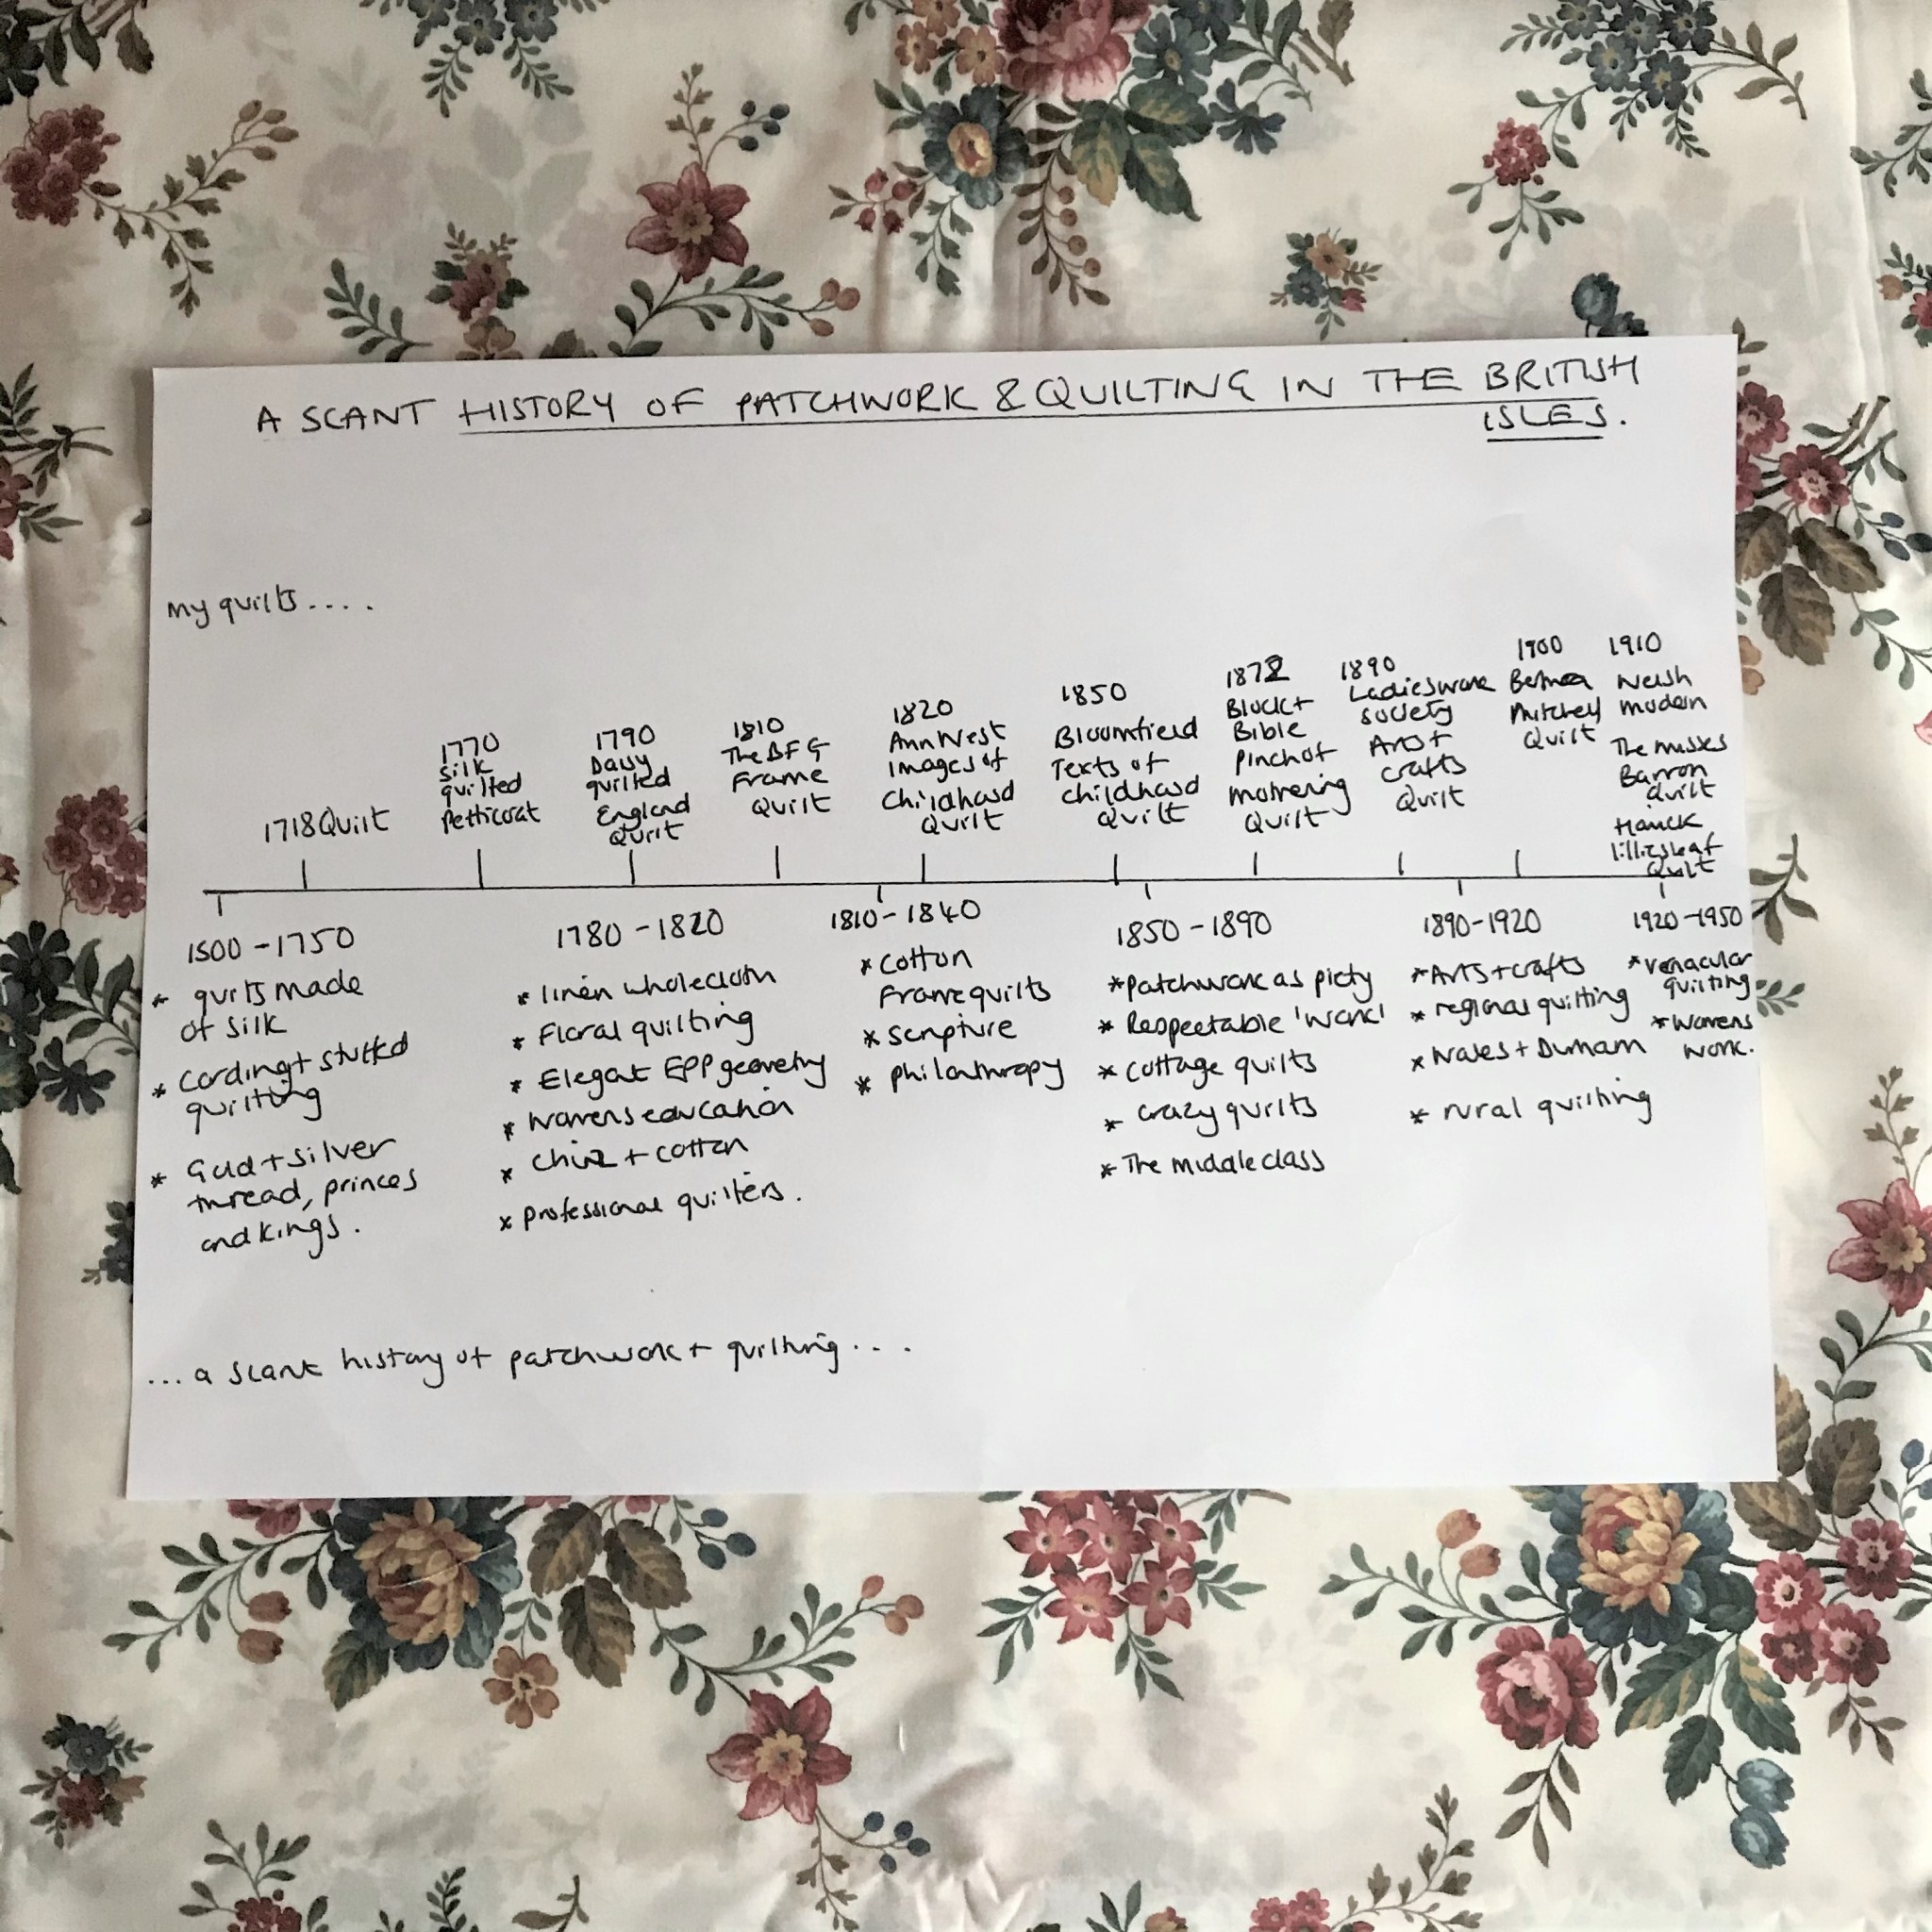 A SCANT HISTORY OF PATCHWORK & QUILTING IN THE BRITISH
ISLES.
my quilts....
1718 Quilt
1770
Silk
quilted
Petticoat
1790
Daisy
quilted
England
Quilt
1810
The BFG
Frame
Quilt
1820
Ann West
Images of
Childhood
Quilt
1850
Bloomfield
Texts of
childhood
Quilt
1872
Block +
Bible
Pinch of
mothering
Quilt
1890
Ladies work
society
Arts +
crafts
Quilt
1900
Mitchell
Quilt
1910
Welsh
modern
The misses
Barron
Quilt
lilliesleaf
Quilt
1500 - 1750
* quilts made
of silk
* Cording + stuffed
quilting
* Gold + silver
thread, princes
and kings.
1780 - 1820
* linen wholecloth
* Floral quilting
* Elegant EPP geometry
* Womens education
* Chinz + cotton
* professional quilters.
1810 - 1840
* Cotton
Frame quilts
* Scripture
* philanthropy
1850 - 1890
* patchwork as piety
* Respectable 'work'
* Cottage quilts
* crazy quilts
* The middle class
1890-1920
* Arts + crafts
* regional quilting
* Wales + Durham
* rural quilting
1920-1950
* venacular
quilting
* womens
work.
...a scant history of patchwork + quilting...